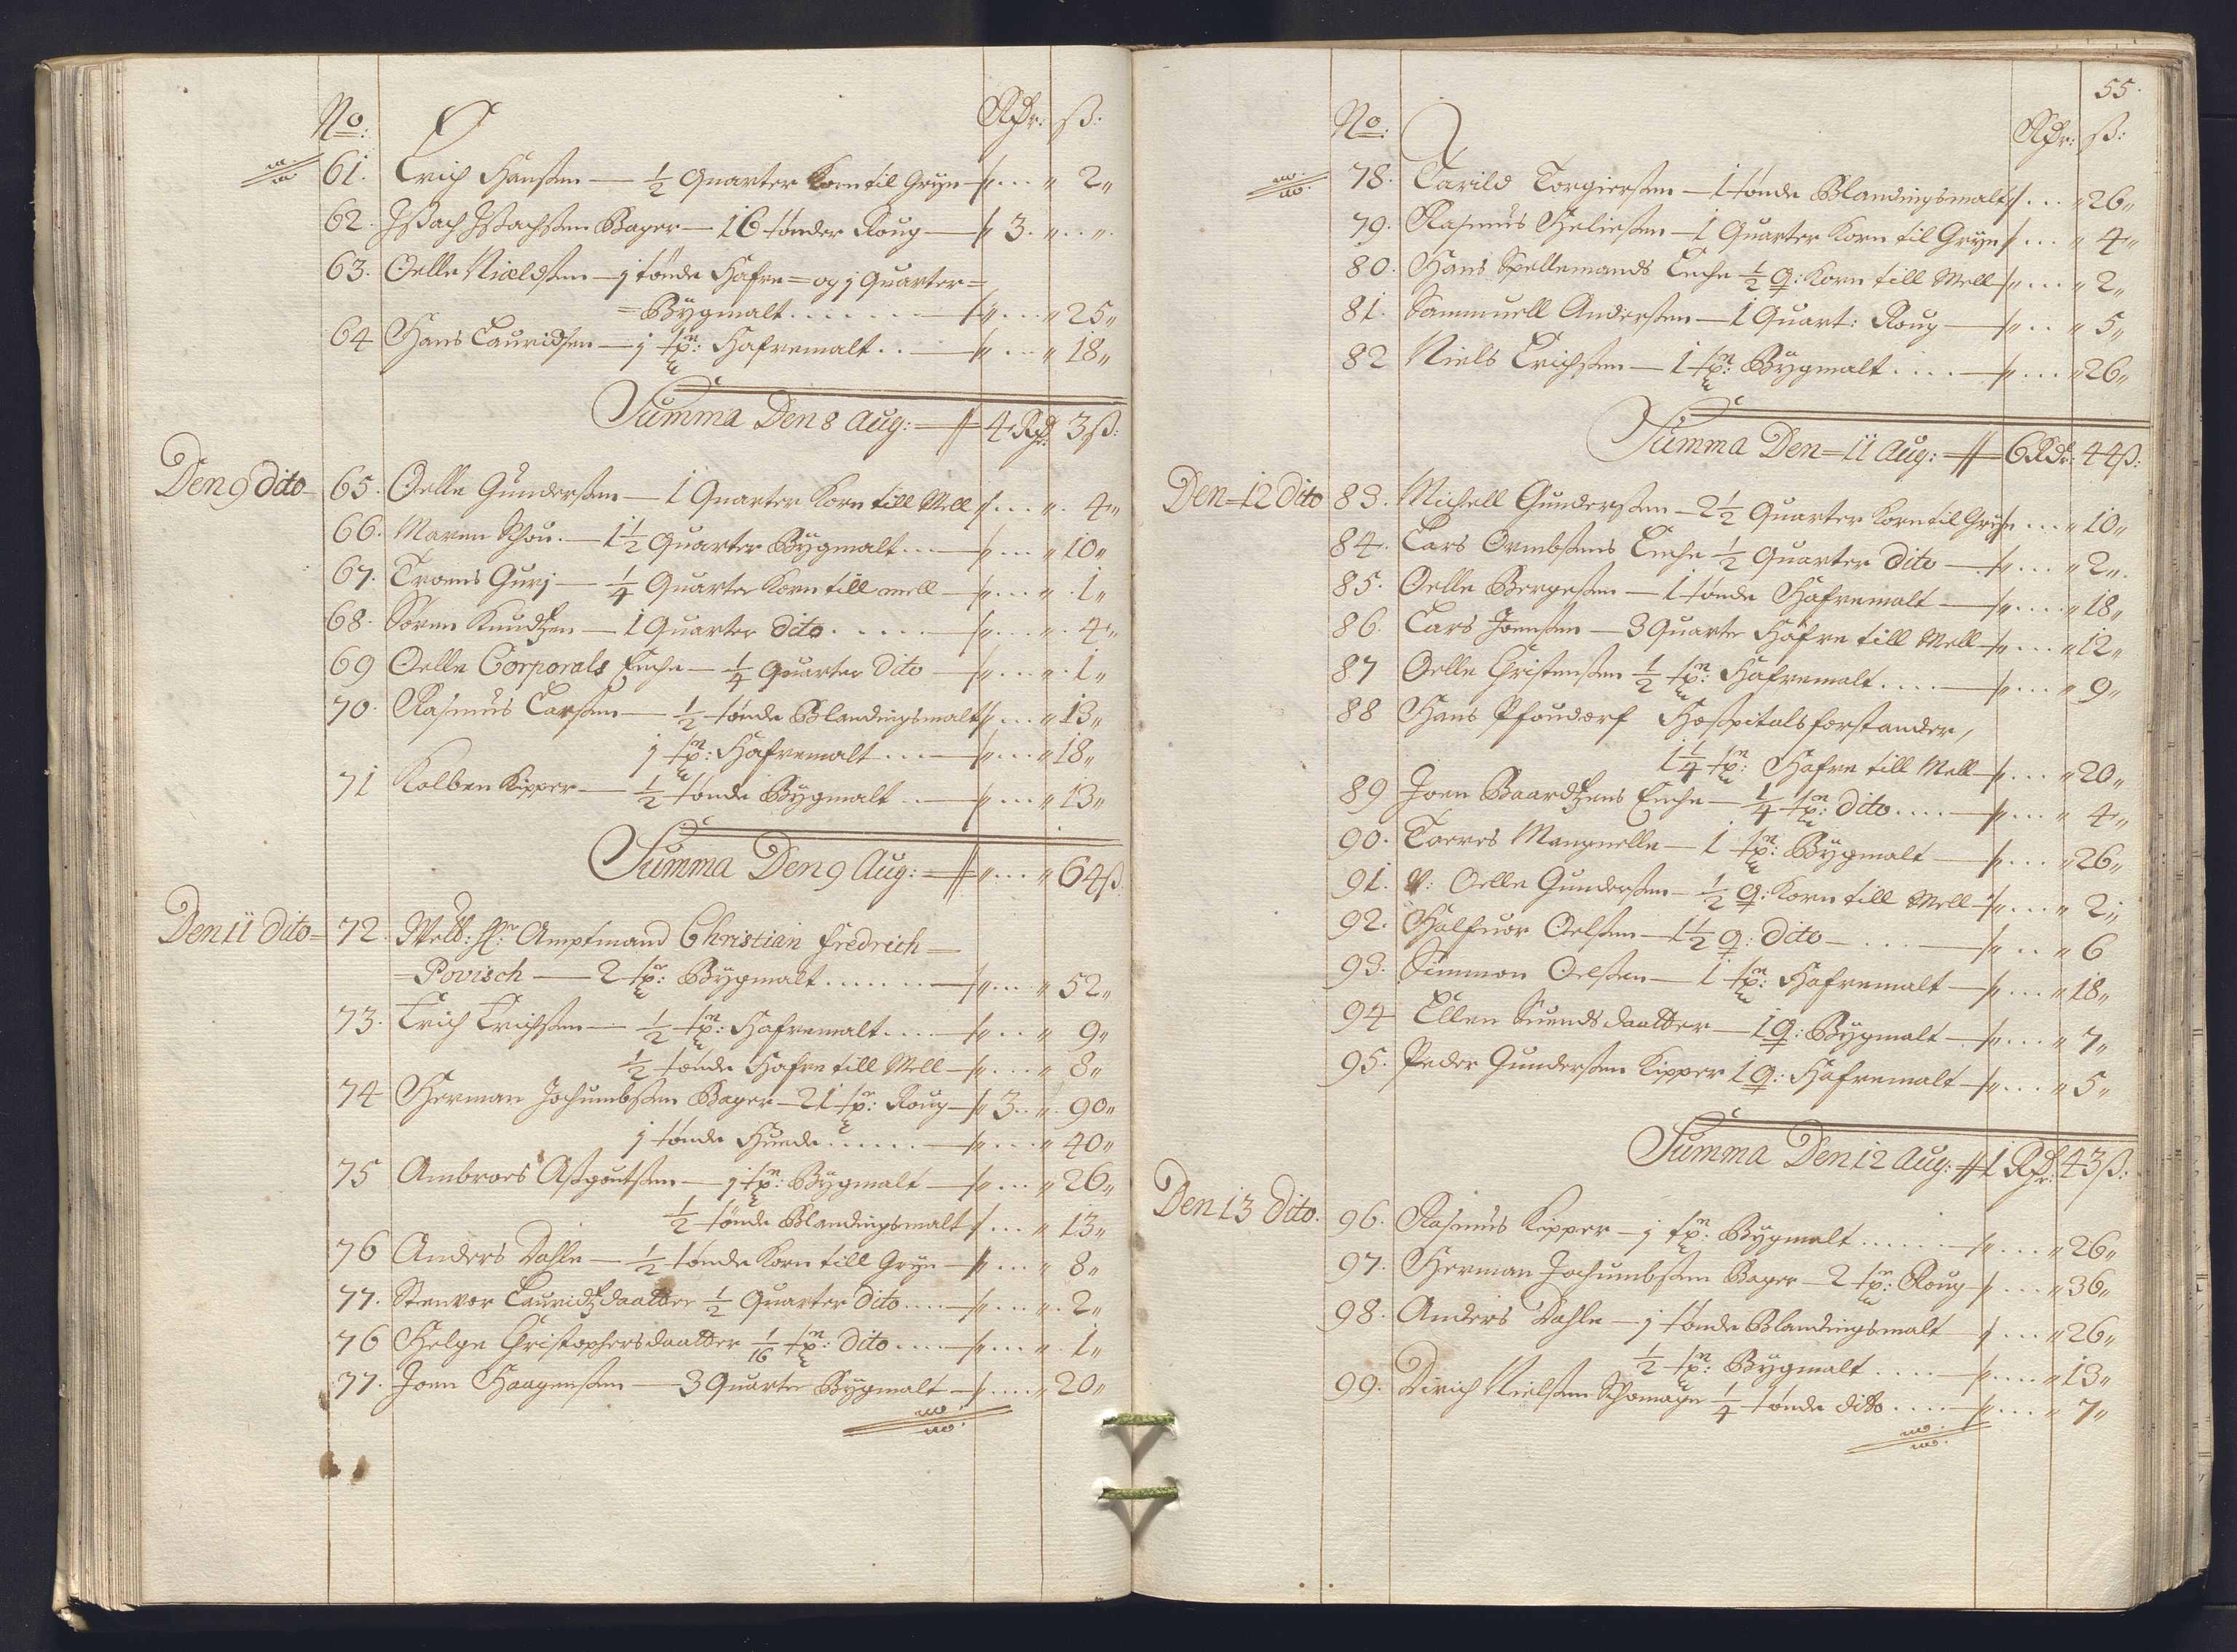 No: Rdr: ß:
61. Erich Hanssen — ½ Quarter Korn til Gryn — „ . . . „ 2 „
62. Issach Issachssen Bager — 16 tønder Roug — „ 3. „ . . „
63. Oelle Nieldssen — j tønde Hafre = og j Quarter =
= Bÿgmalt . . . . . . . — „ . . . „ 25 „
64 Hans Lauridssen — j tn: Hafremalt . . — „ . . . „ 18 „
Summa Den 8 Aug: — 4 Rdr 3 ß:
Den 9 Dito — 65. Oelle Gunderssen — 1 Quarter Korn till Mell „ . . . „ 4 „
66. Maren Schou. — 1½ Quarter Bÿgmalt . . . — „ . . . „ 10 „
67. Troens Gurj — ¼ Quarter Korn till mell — „ . . . „ 1 „
68. Søren Knudtzen — 1 Quarter Dito . . . . . — „ . . . „ 4 „
69 Oelle Corporals Enche — ¼ Quarter Dito — „ . . . „ 1 „
70. Rasmus Larssen — ½ tønde Blandingsmalt „ . . . „ 13 „
j tn: Hafremalt . . . — „ . . . „ 18 „
71 Kolben Kipper — ½ tønde Bÿgmalt . . — „ . . . „ 13 „
Summa Den 9 Aug: — „ . . . „ 64 ß.
Den 11 Dito = 72. Welb: Hr Amptmand Christian Fredrich —
= Povisch — 2 tr: Bÿgmalt . . . . . . — „ . . . „ 52 „
73. Erich Erichssen — ½ tn: Hafremalt . . . . — „ . . . „ 9 „
½ tønde Hafre till Mell — „ . . . „ 8 „
74 Herman Jochumbssen Bager — 21 tr: Roug — „ 3 . . „ 90 „
j tønde Huede . . . . . . — „ . . . „ 40 „
75 Ambroes Assgoutssen — j tn: Bÿgmalt — „ . . . „ 26 „
½ tønde Blandingsmalt „ . . . „ 13 „
76 Anders Dahle — ½ tønde Korn till Gryn — „ . . . „ 8 „
77. Stenvor Lauridtzdaatter ½ Quarter Dito . . . . — „ . . . „ 2 „
76 Helge Christophersdaatter 1/16 tn: Dito . . . . — „ . . . „ 1 „
77. Joen Haagenssen — 3 Quarter Bÿgmalt — „ . . . . „ 20 „
55.
No: Rdr: ß:
78. Tarild Torgierssen — 1 tønde Blandingsmalt „ . . . „ 26 „
79. Rasmus Heliessen — 1 Quarter Korn til Gryn „ . . . „ 4 „
80. Hans Spellemands Enche ½ q: Korn till Mell — „ . . . „ 2 „
81. Sammuell Anderssen — 1 Quart: Roug — „ . . „ 5 „
82 Niels Erichssen — 1 tn: Bÿgmalt . . . . — „ . . . „ 26 „
Summa Den = 11 Aug: — 6 Rdr: 44 ß:
Den = 12 Dito 83. Michell Gunderssen — 2½ Quarter Korn til Gryn . . . „ 10 „
84. Lars Ormbssens Enche ½ Quarter Dito — „ . . . „ 2 „.
85. Oelle Bergessen — 1 tønde Hafremalt — „ . . . . „ 18 „
86. Lars Joenssen — 3 Quarter Hafre till Mell — „ . . . „ 12 „
87 Oelle Christenssen ½ tn: Hafremalt . . . . — „ . . . „ 9 „
88 Hans Pfoudorf Hosspitalsforstander,
1¼ tn: Hafre till Mell — „ . . . „ 20 „
89 Joen Baardtzens Enche — ¼ tn: Dito . . . . — „ . . . „ 4 „
90. Torres Mangnelle — 1 tn: Bÿgmalt — „ . . . „ 26 „
91. V: Oelle Gunderssen — ½ q: Korn till Mell — „ . . . „ 2 „
92. Halfuor Oelssen — 1½ q: Dito — . . . — „ . . „ 6
93. Simmon Oelssen — 1 tn: Hafremalt — „ . . . „ 18 „
94 Ellen Suendsdaatter — 1 q: Bÿgmalt — „ . . . „ 7 „
95. Peder Gunderssen Kipper 1 q: Hafremalt — „ . . . „ 5 „
Summa Den 12 Aug: — 1 Rdr: 43 ß:
Den 13 Dito. 96. Rasmus Kipper — j tn: Bÿgmalt . . . . . . — „ . . . „ 26 „
97. Herman Jochumbssen Bager — 2 tn: Roug — „ . . . „ 36 „
98. Anders Dahle — j tønde Blandingsmalt — „ . . . „ 26 „
½ tn: Bÿgmalt . . . . — „ . . . . „ 13 „
99. Dirich Nielssen Schomager ¼ tønde dito . . . . — „ . . . „ 7 „